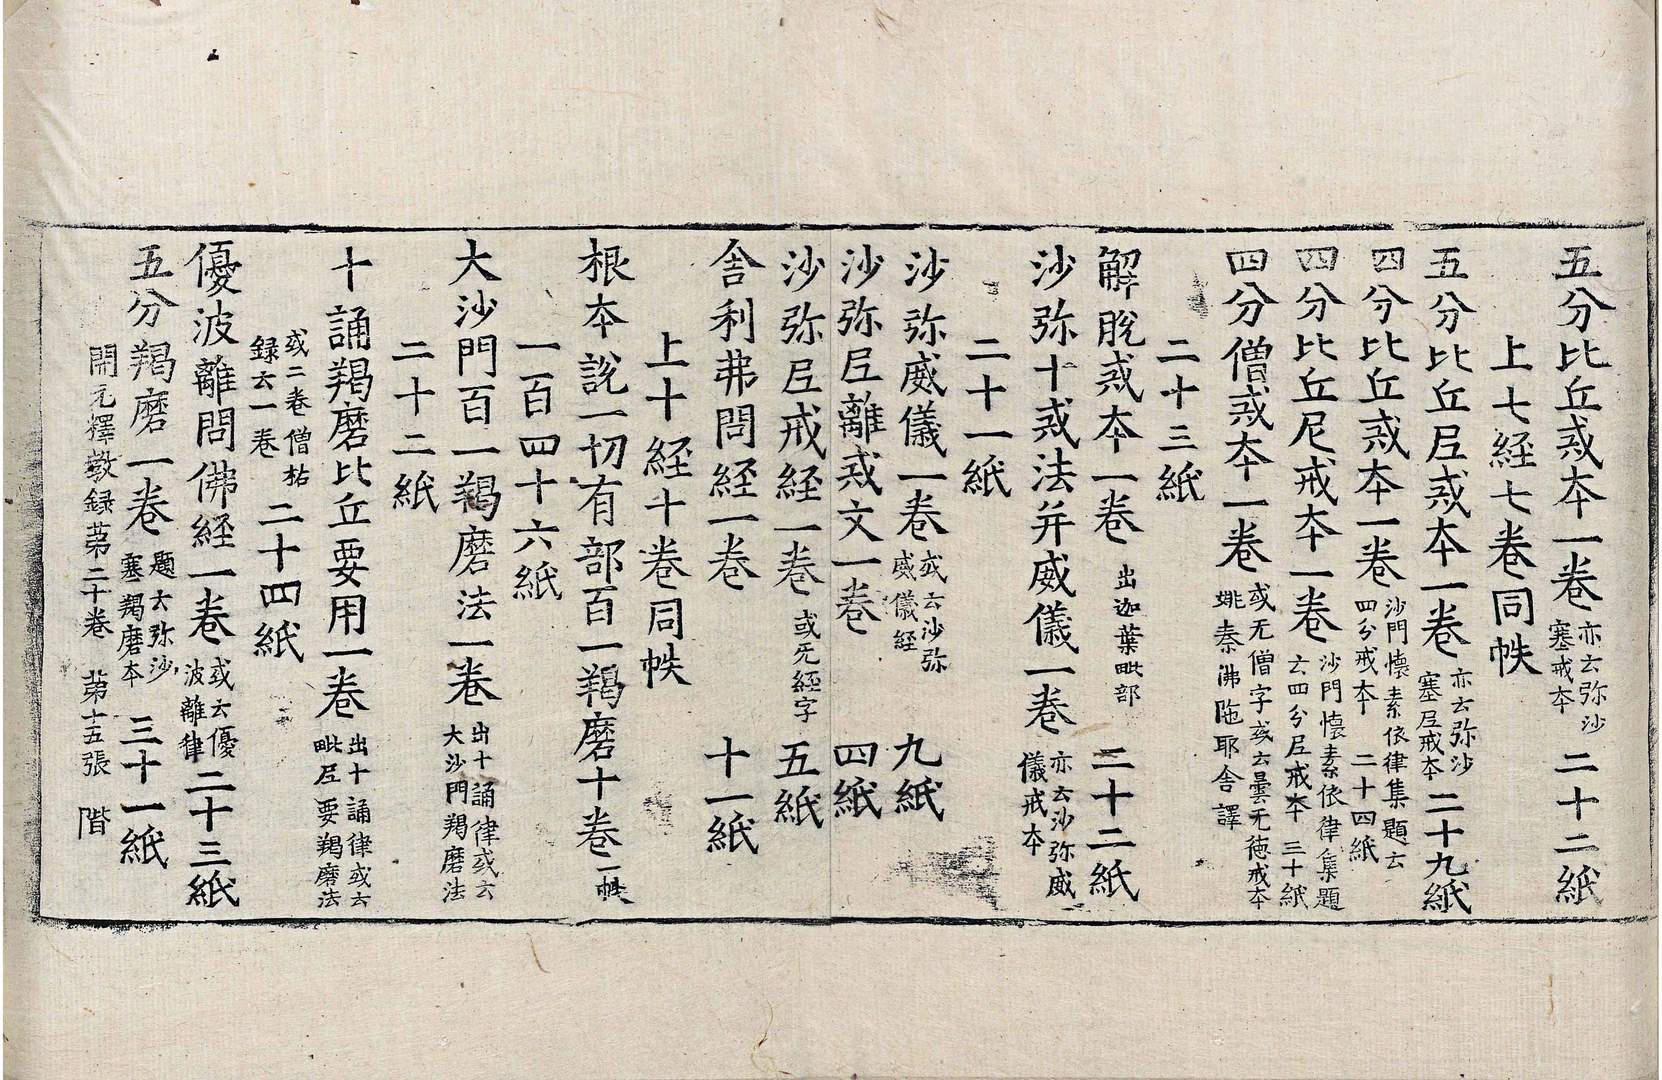 五分比丘戒本一卷 亦云弥沙塞戒本 二十二紙
上七経七卷同帙
五分比丘尼戒本一卷 亦云弥沙塞尼戒本 二十九紙
四分比丘戒本一卷 沙門懐素依律集題云四分戒本 二十四紙
四分比丘尼戒本一卷 沙門懐素依律集題云四分尼戒本 三十紙
四分僧戒本一卷 或无僧字或云曇无徳戒本姚秦佛陁耶舍譯
二十三紙
解脫戒本一卷 出迦葉毗部 二十二紙
沙弥十戒法并威儀一卷 亦云沙弥威儀戒本
二十一紙
沙弥威儀一卷 或云沙弥威儀経 九紙
沙弥尼離戒文一卷 四紙
沙弥尼戒経一卷 或无経字 五紙
舍利弗問経一卷 十一紙
上十経十卷同帙
根本說一切有部百一羯磨十卷 一帙
一百四十六紙
大沙門百一羯磨法一卷 出十誦律或云大沙門羯磨法
二十二紙
十誦羯磨比丘要用一卷 出十誦律或云毗尼要羯磨法
或二卷僧祐録云一卷 二十四紙
優波離問佛経一卷 或云優波離律 二十三紙
五分羯磨一卷 題云弥沙塞羯磨本 三十一紙
開元釋教録第二十卷 第十五張 階